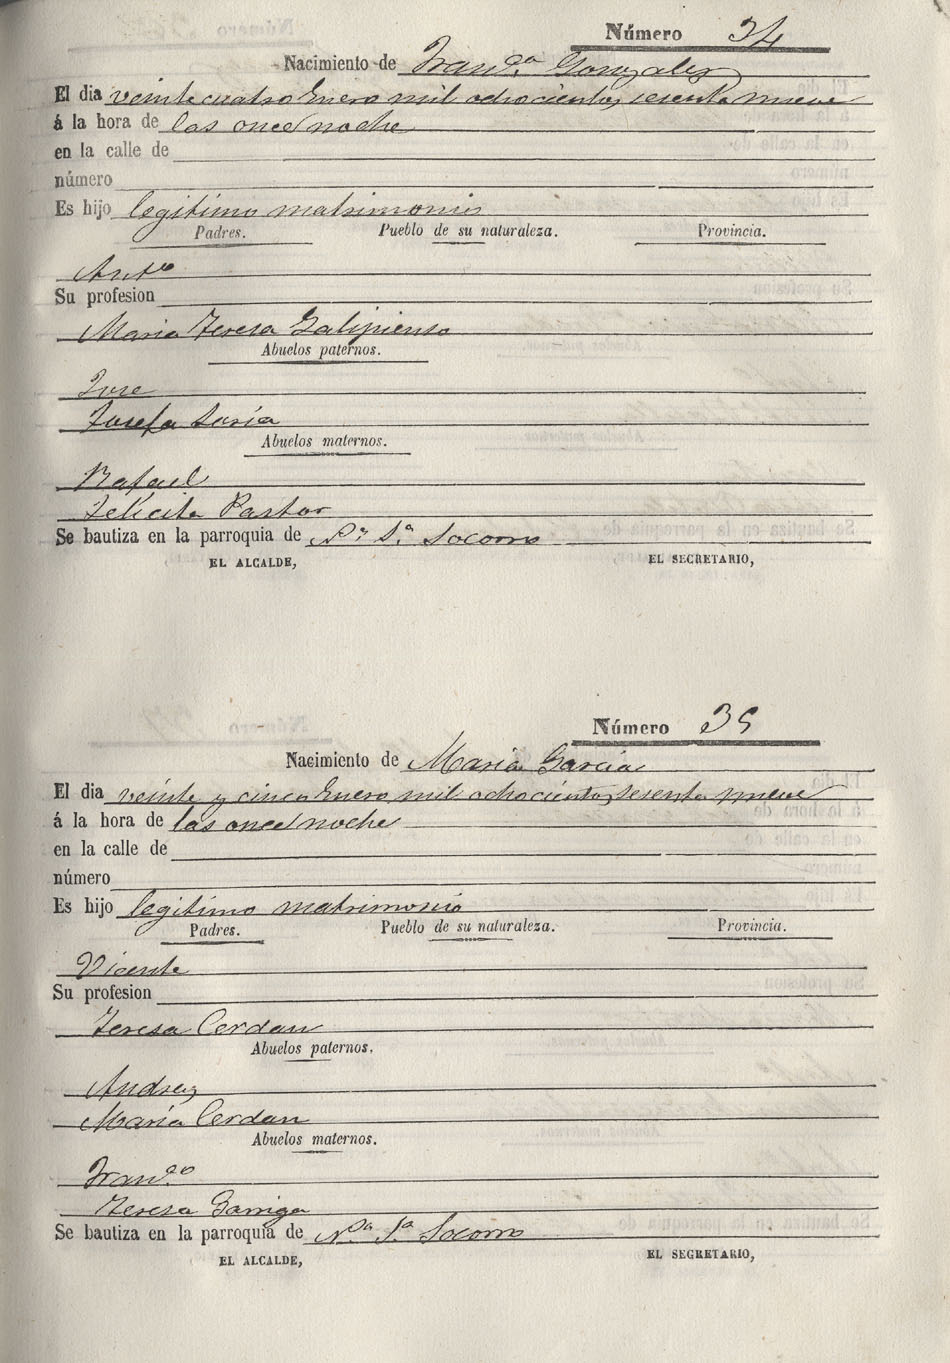 Número 34
Nacimiento de Franca Gonzalez
El dia veinte cuatro Enero mil ochocientos sesenta nueve
á la hora de las once noche
en la calle de
número
Es hijo legitimo matrimonio
Padres. Pueblo de su naturaleza. Provincia.
Anto
Su profesion
Maria Teresa Galipienso
Abuelos paternos.
Jose
Josefa Soria
Abuelos maternos.
Rafael
Felicita Pastor
Se bautiza en la parroquia de Nra Sa Socorro
EL ALCALDE, EL SECRETARIO,
Número 35
Nacimiento de Maria Garcia
El dia veinte y cinco Enero mil ochocientos sesenta nueve
á la hora de las once noche
en la calle de
número
Es hijo legitimo matrimonio
Padres. Pueblo de su naturaleza. Provincia.
Vicente
Su profesion
Teresa Cerdan
Abuelos paternos.
Andres
Maria Cerdan
Abuelos maternos.
Franco
Teresa Garriga
Se bautiza en la parroquia de Na Sa Socorro
EL ALCALDE, EL SECRETARIO,